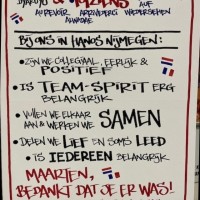 & TOT ZIENS
AUF
AU REVOIR ARRIVEDERCI WIEDERSEHEN
BIJ ONS IN HANOS NIJMEGEN:
• ZIJN WE COLLEGIAAL, EERLIJK &
POSITIEF
• IS TEAM-SPIRIT ERG
BELANGRIJK
• WILLEN WE ELKAAR SAMEN
AAN & WERKEN WE
• DELEN WE LIEF EN SOMS LEED
• IS IEDEREEN BELANGRIJK
MAARTEN,
BEDANKT DAT JE ER WAS!